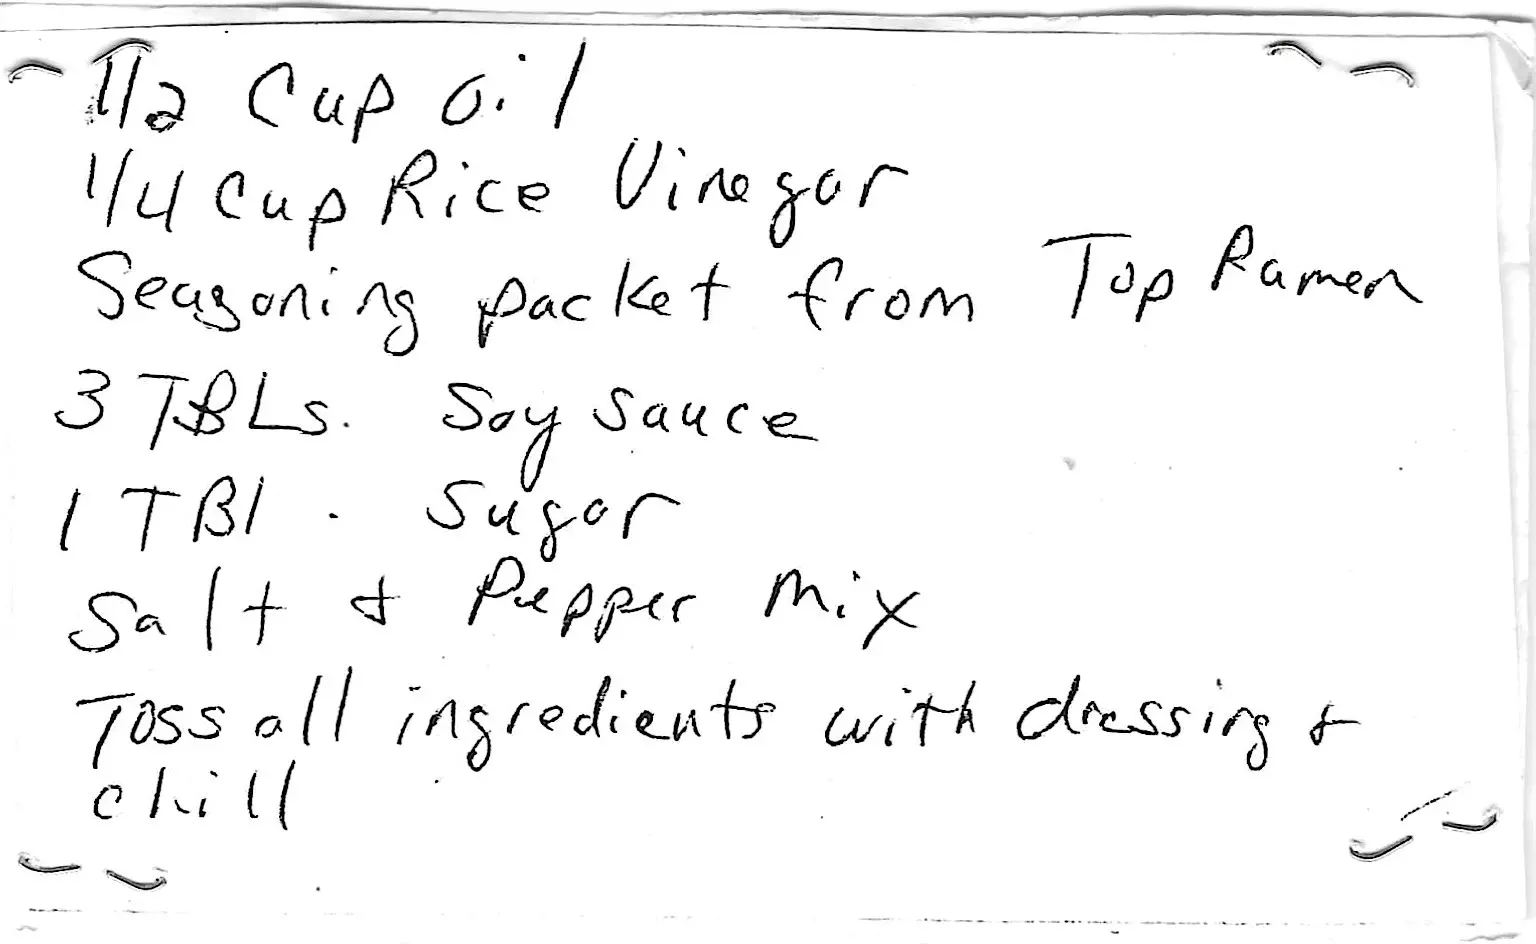 1/2 Cup oil
1/4 Cup Rice Vinegar
Seasoning packet from Top Ramen
3 TBLs. Soy sauce
1 TBl. Sugar
Salt & Pepper Mix
Toss all ingredients with dressing &
chill